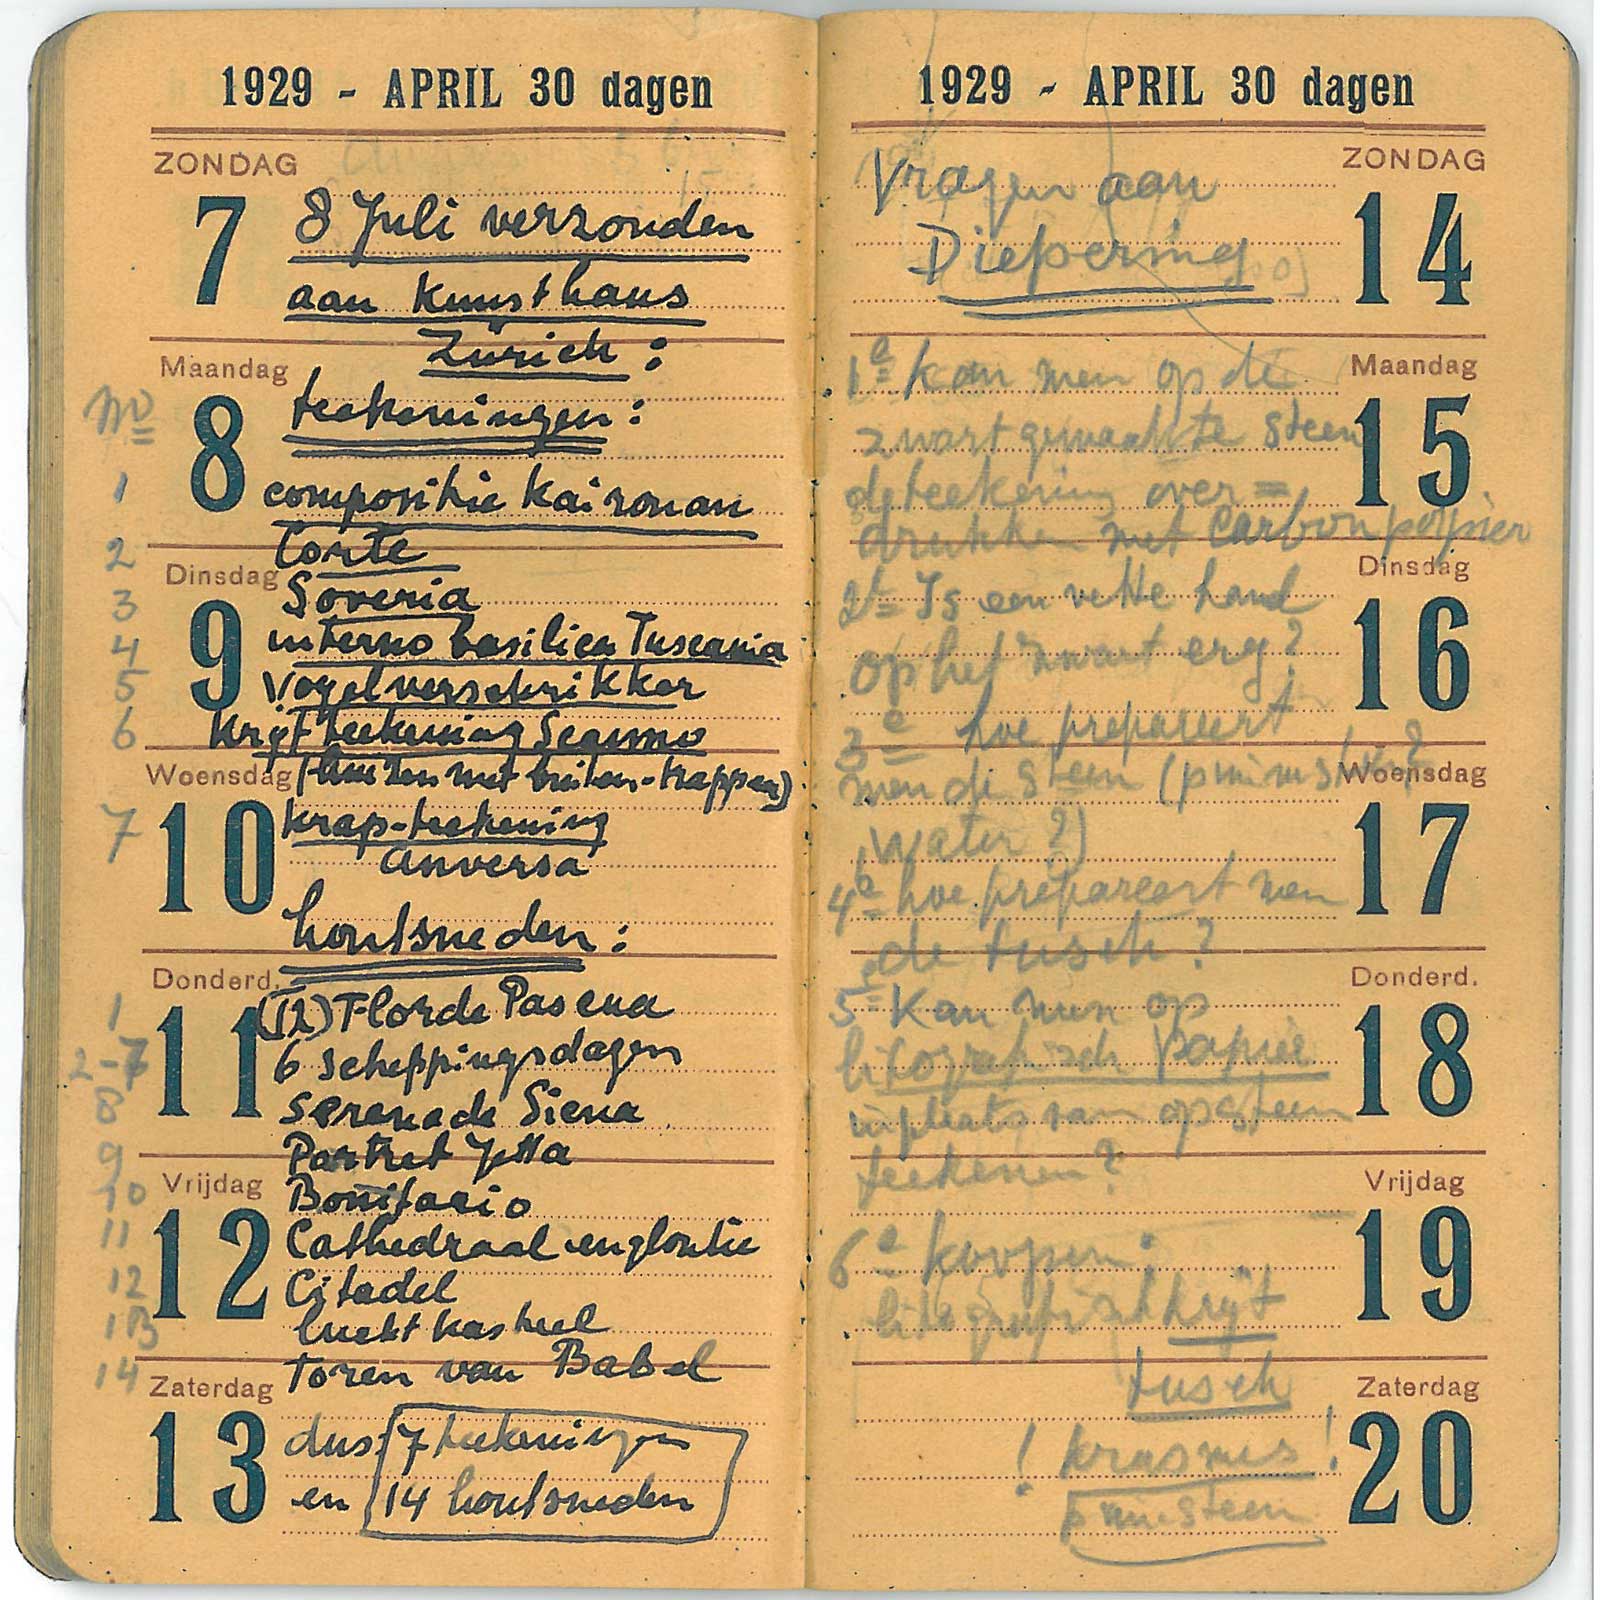 1929 - APRIL 30 dagen
ZONDAG
7
8 Juli verzonden
aan Kunsthaus
Zürich :
Maandag
8
No
teekeningen :
1 compositie Kaironan
2 Corte
Dinsdag
9
3 Soveria
4 interno basilica Tuscania
5 Vogelverschrikker
6 Krijtteekening Scanno
Woensdag
10
(huizen met buiten-trappen)
7 krap-teekening
Anversa
houtsneden :
Donderd.
11
1 (12) Flor de Pascua
2-7 6 scheppingsdagen
8 serenade Siena
9 Portret Jetta
Vrijdag
12
10 Bonifacio
11 Cathedraal engloutie
12 Citadel
13 luchtkasteel
14 Toren van Babel
Zaterdag
13
dus 7 teekeningen
en 14 houtsneden
1929 - APRIL 30 dagen
ZONDAG
14
Vragen aan
Diepering
Maandag
15
1e kan men op de
zwart gemaakte steen
de teekening over=
drukken met Carbonpapier
Dinsdag
16
2e Is een vette hand
op het zwart erg?
3e hoe prepareert
Woensdag
17
men de steen (puimsteen?
water?)
4e hoe prepareert men
de tusch?
Donderd.
18
5e Kan men op
litografisch papier
inplaats van op steen
teekenen?
Vrijdag
19
6e koopen :
litografisch krijt
tusch
Zaterdag
20
! krasmes !
puimsteen